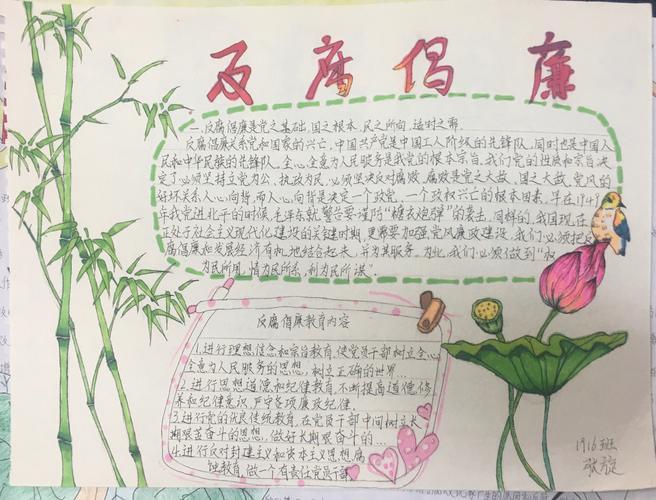 反腐倡廉
一.反腐倡廉是党之基础,国之根本,民之所向,适时之需.
反腐倡廉关系党和国家的兴亡.中国共产党是中国工人阶级的先锋队,同时也是中国人
民和中华民族的先锋队.全心全意为人民服务是我党的根本宗旨.我们党的性质和宗旨决
定了必须坚持立党为公、执政为民,必须坚决反对腐败.腐败是党之大敌、国之大敌.党风的
好坏关系人心向背,而人心向背是决定一个政党、一个政权兴亡的根本因素.早在1949
年我党进北京的时候,毛泽东就警告要谨防“糖衣炮弹”的袭击.同样的,我国现在
正处于社会主义现代化建设的关键时期,更需要加强党风廉政建设,我们必须把反
腐倡廉和发展经济有机地结合起来,并为其服务.为此,我们必须做到“权
为民所用,情为民所系,利为民所谋.”
反腐倡廉教育内容
1.进行理想信念和宗旨教育,使党员干部树立全心
全意为人民服务的思想,树立正确的世界...
2.进行思想道德和纪律教育,不断提高道德修
养和纪律意识,严守各项廉政纪律.
3.进行党的优良传统教育,在党员干部中间树立长
期艰苦奋斗的思想,做好长期艰奋斗的...
4.进行反对封建主义和资本主义思想腐
蚀教育,做一个有责任党员干部
1月16班